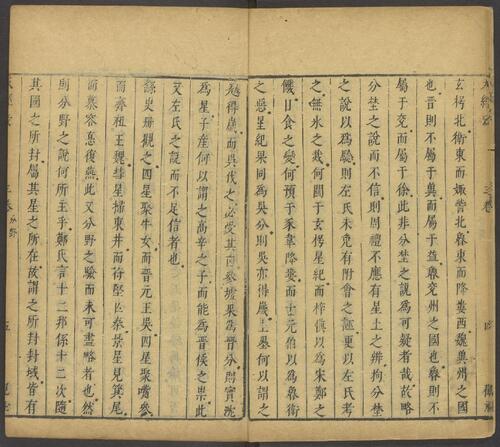 玄枵北衛東而娵訾北魯東而降婁西魏冀州之國
也晉則不屬于冀而屬于益魯兗州之國也魯則不
屬于兗而屬于徐此非分埜之說為可疑者哉故略
分埜之說而不信則周禮不應有星土之辨拘分埜
之說以為騐則左氏未免有附會之誣更以左氏考
之無氷之烖何關于玄枵星紀而梓慎以為宋鄭之
饑日食之變何預于豕韋降婁而士元伯以為魯衛
之惡星紀果同為吳分則吳亦得歲星何以謂之
越得歲而吳伐之必受其凶參墟果為晉分則實沈
為星子產何以謂之高辛之子而能為晉侯之祟此
又左氏之說而不足信者也
史冊觀之四星聚牛女而晉元王吳四星聚觜參
而齊祖王魏彗星掃東井而苻堅亡秦景星見箕尾
而慕容悳復燕此又分野之驗而未可盡略者也然
則分野之說何所主乎鄭氏言十二邦係十二次隨
其國之所封屬其星之所在故謂之所封封域皆有